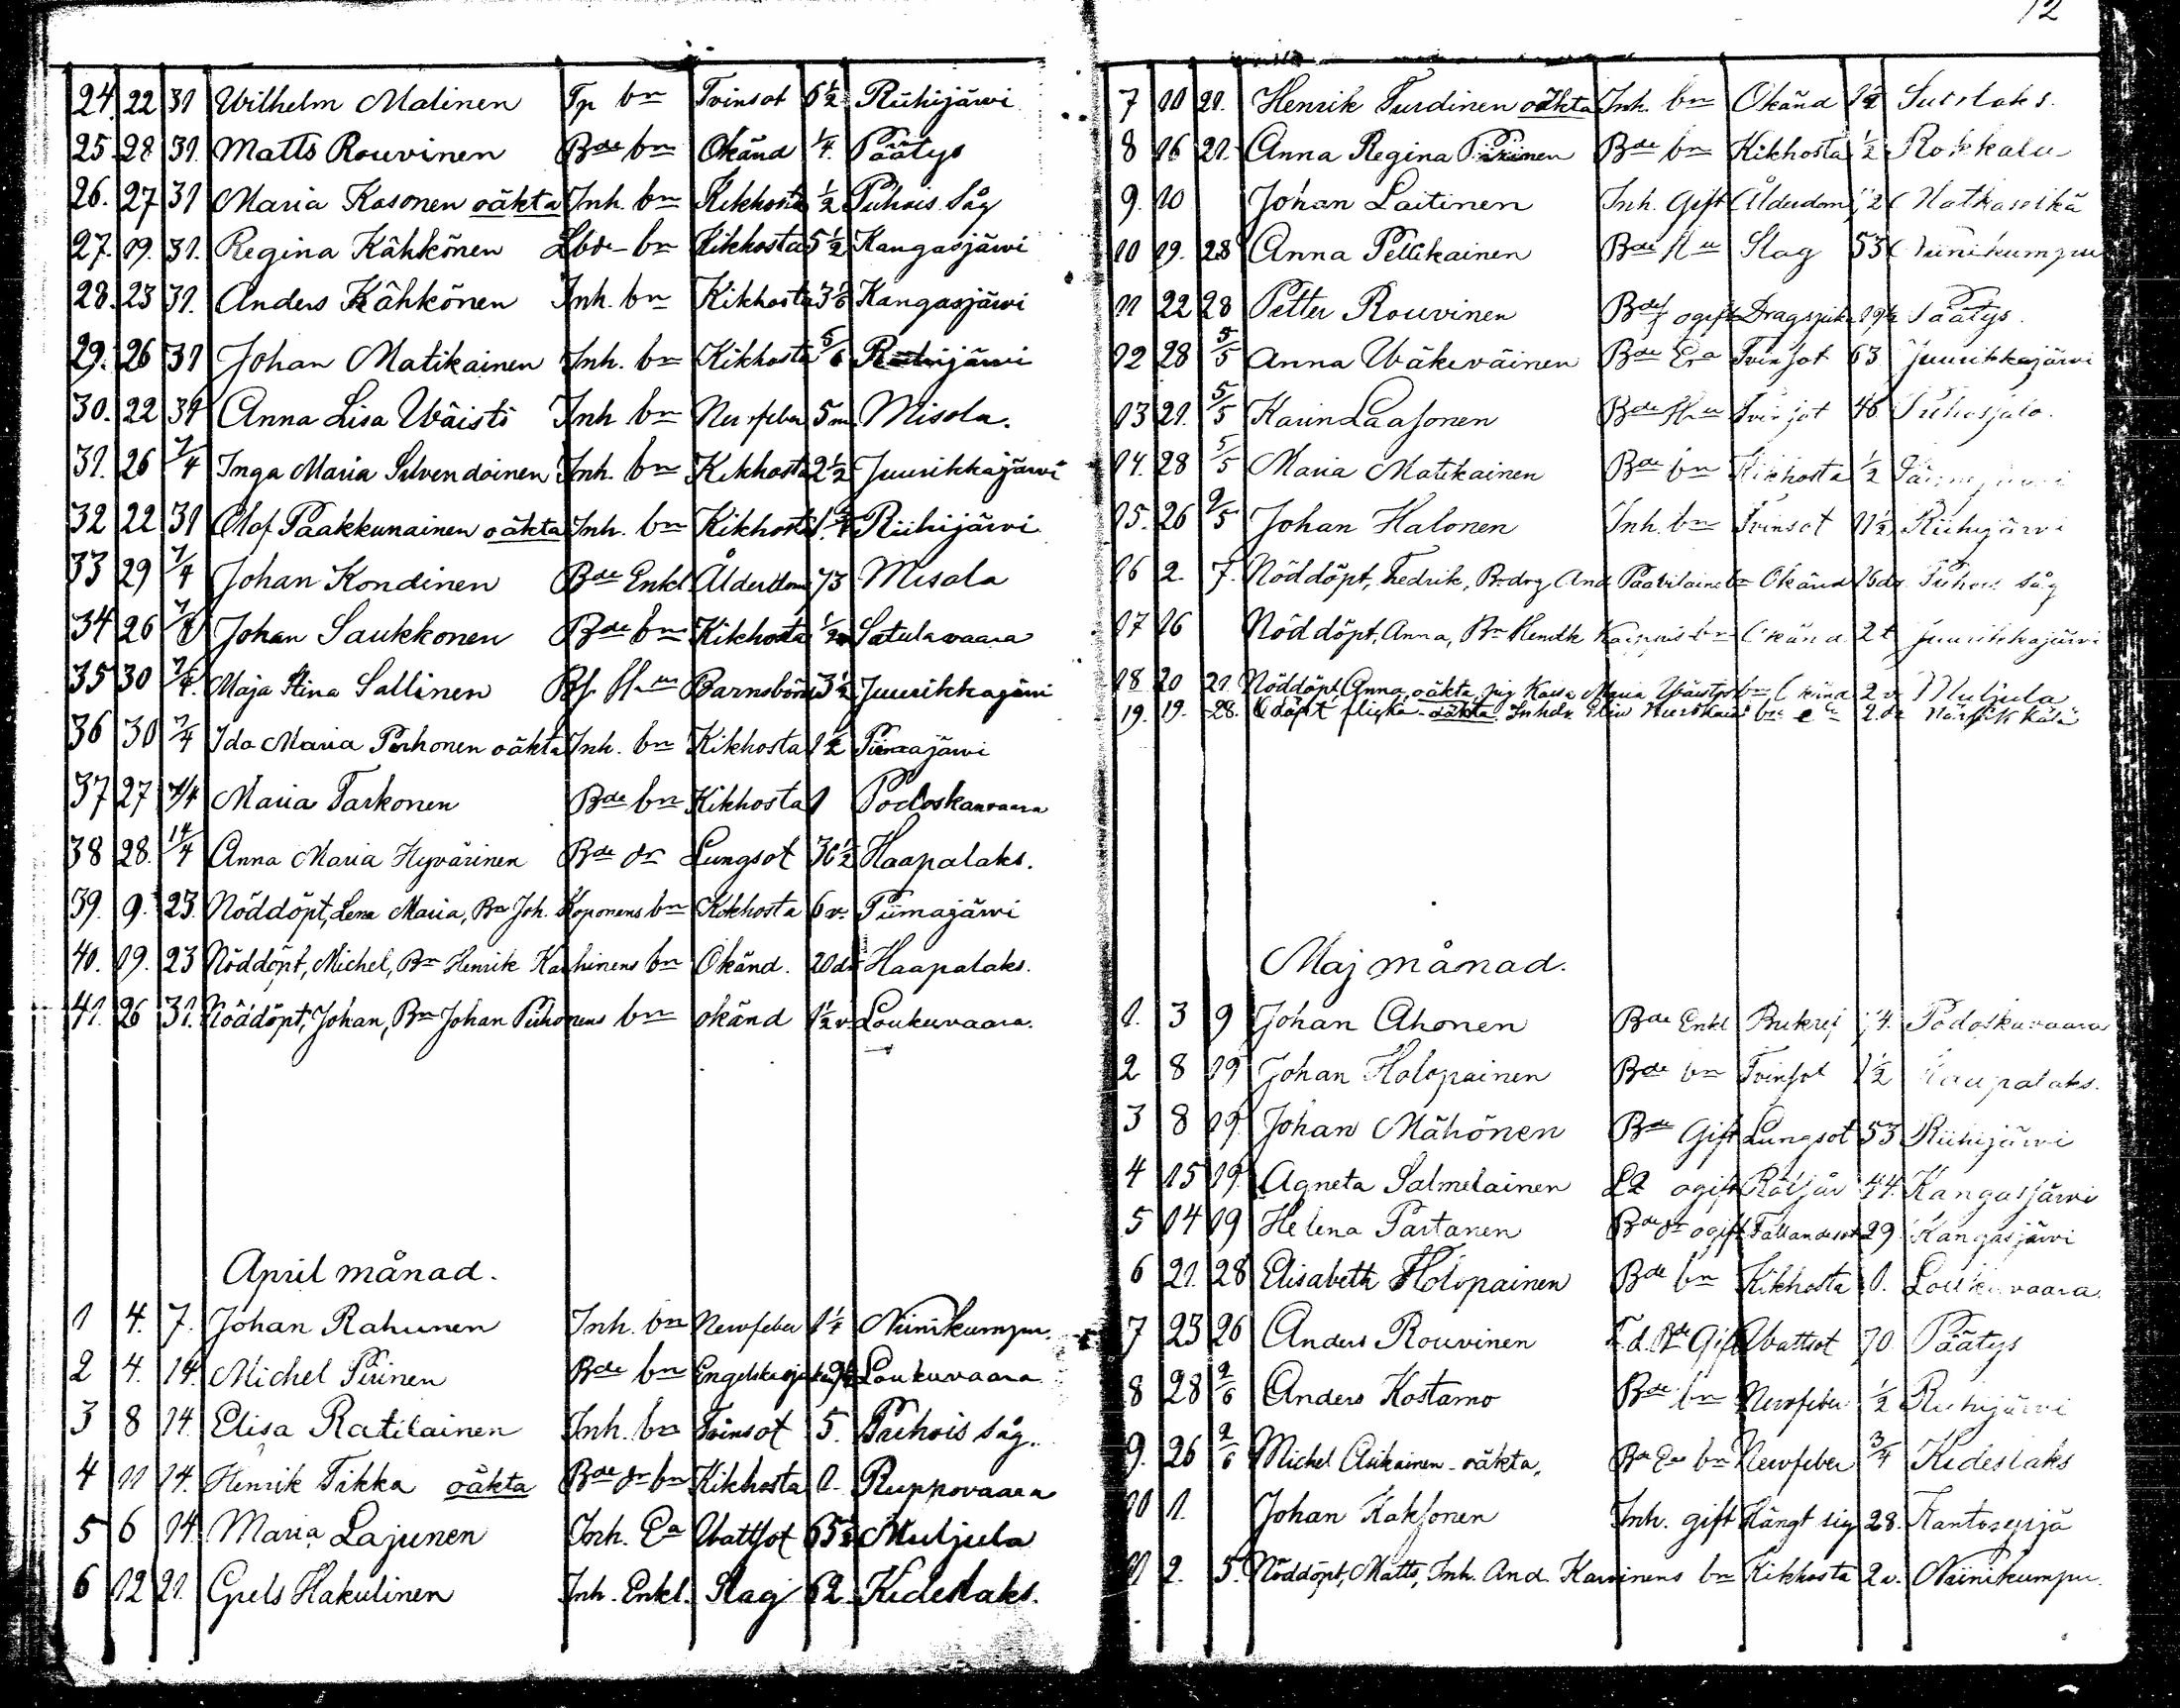 24. 22 31 Wilhelm Malinen Tp bn Tvinsot 6½ Riihijärvi
25. 28 31. Matts Rouvinen Bde bn Okänd ¼. Päätys
26. 27 31 Maria Kosonen oäkta Inh. bn Kikhosta ½ Puhois Såg
27. 19. 31. Regina Kähkönen Lbde bn Kikhosta 5½ Kangasjärvi
28. 23 31. Anders Kähkönen Inh. bn Kikhosta Kangasjärvi
29. 26 31 Johan Matikainen Inh. bn Kikhosta 5/6 Riihijärvi
30. 22 31 Anna Lisa Wäistö Inh bn Nervfeber 5 m Misola.
31. 26 7/4 Inga Maria Silvendoinen Inh. bn Kikhosta 2½ Juurikkajärvi
32 22 31 Olof Paakkunainen oäkta Inh. bn Kikhosta Riihijärvi
33 29 7/4 Johan Kondinen Bde Enkl. Ålderdom 73 Misola
34 26 7/4 Johan Saukkonen Bde bn Kikhosta ½ Satulavaara
35 30 7/4. Maja Stina Sallinen H_u Barnsbörd 3½ Juurikkajärvi
36 30 7/4 Ida Maria Parhonen oäkta Inh. bn Kikhosta 1½ Piimajärvi
37 27 7/4 Maria Tarkonen Bde bn Kikhosta 1 Podoskavaara
38 28. 14/4 Anna Maria Hyvärinen Bde dr Lungsot 30½ Haapalaks.
39. 9. 23. Nöddöpt, Lena Maria, Bn Joh. Koponens bn Kikhosta 6 v. Piimajärvi
40. 19. 23 Nöddöpt, Michel, Bn Henrik Karhinens bn Okänd. 20 d. Haapalaks.
41. 26 31. Nöddöpt, Johan, Bn Johan Pirhonens bn okänd 1½ v. Loukuvaara.
April månad.
1 4. 7. Johan Rahunen Inh. bn Nervfeber 1¼ Niinikumpu.
2 4. 14. Michel Piirinen Bde bn Engelska sjukan Loukuvaara
3 8 14. Elisa Ratilainen Inh. bn Tvinsot 5. Puhois såg.
4 11 14. Henrik Tikka oäkta Bde dr bn Kikhosta 1. Ruppovaara
5 6 14. Maria Lajunen Inh. Ea Wattsot 65½ Muljula
6 12 21. Grels Hakulinen Inh. Enkl. Slag 62 Kideslaks.
12
7 10 21. Henrik Turdinen oäkta Inh. bn Okänd 1½ Suorlaks.
8 16 21. Anna Regina Piirinen Bde bn Kikhosta ½ Rokkala
9. 10 Johan Laitinen Inh. Gift Ålderdom Hatkaselkä
10 19. 28 Anna Pellikainen Bde Slag 53 Niinikumpu
11 22 28 Petter Rouvinen Bde ogift Päätys.
12 28 5/5 Anna Wäkeväinen Bde Ea Tvinsot 63 Juurikkajärvi
13 21. 5/5 Karin Laasonen Bde Tvinsot 46 Puhosjalo.
14. 28 5/5 Maria Matikainen Bde bn Kikhosta ½
15. 26 9/5 Johan Halonen Inh. bn Tvinsot 11½ Riihijärvi
16 2. 7. Nöddöpt, Fredrik, And Paatilainens bn Okänd 16 d. Puhois såg
17 16 Nöddöpt, Anna, Bn Hendk Karppis bn Okänd 2 t Juurikkajärvi
18 20 21. Nöddöpt Anna, oäkta, pig Kaisa Maria bn Okänd 2 v Muljula
19. 19. 28. Odöpt flicka oäkta Inhdr 2. d.
Maj månad.
1. 3 9 Johan Ahonen Bde Enkl 74. Podoskavaara
2 8 19 Johan Holopainen Bde bn Tvinsot 1½ Haapalaks.
3 8 19. Johan Mähönen Bde Gift Lungsot 53 Riihijärvi
4 15 19. Agneta Salmelainen ogift 44. Kangasjärvi
5 14 19 Helena Partanen Bde dr ogift Fallandesot 29 Kangasjärvi
6 21. 28 Elisabeth Holopainen Bde bn Kikhosta 1. Loukuvaara.
7 23 26 Anders Rouvinen F. d. Bde Gift Wattsot 70 Päätys
8 28 2/6 Anders Kostamo Bde bn Nervfeber ½ Riihijärvi
9. 26 2/6 Michel Asikainen oäkta, bn Nervfeber ¾ Kideslaks
10 1. Johan Kaksonen Inh. gift Hängt sig 28. Kantosyrjä
11 2. 5. Nöddöpt, Matts, Inh. And. Karvinens bn Kikhosta 2 v. Niinikumpu.